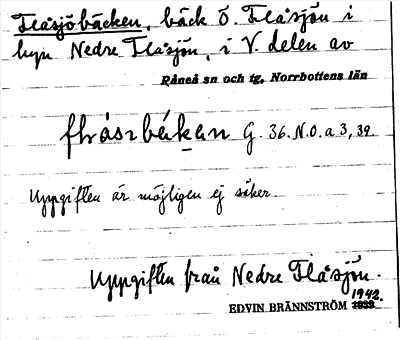 Flåsjöbäcken, bäck Ö. Flåsjön i
byn Nedre Flåsjön, i V. delen av
Råneå sn och tg, Norrbottens län
G. 36. N.O. a 3, 39
Uppgiften är möjligen ej säker.
Uppgiften från Nedre Flåsjön.
1942.
EDVIN BRÄNNSTRÖM 1939